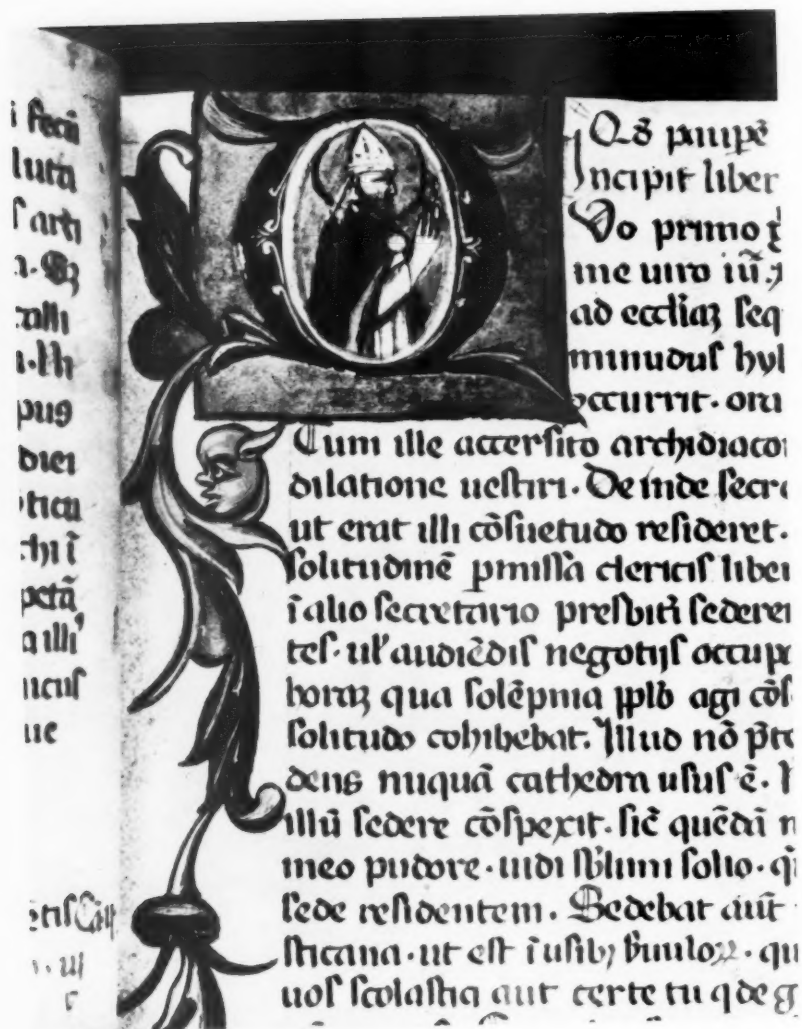 i secū
luta
s arti
pus
diei
tica
chi ī
petā
a illi
ucus
ue
Qd paupē
Incipit liber
Quo primo
me uiro iū
ad eccliaȝ seq
minudus hyl
occurrit. ora
Cum ille accersito archidiaco
dilatione uestiri. De inde secre
ut erat illi cōsuetudo resideret.
solitudinē pmissa clericis liber
ī alio secretario presbiti sedere
tes. ul' audiēdis negotijs occupa
horaȝ qua solēpnia pplō agi cōs
solitudo cohibebat. Illud nō
dens nuquā cathedra usus ē. N
illū sedere cōspexit. sic quēdā n
meo pudore. uidi sblimi solio. q
sede residentem. Sedebat aūt
sticana. ut est ī usibȝ uulo. qu
uos scolastia aut certe tu q de g